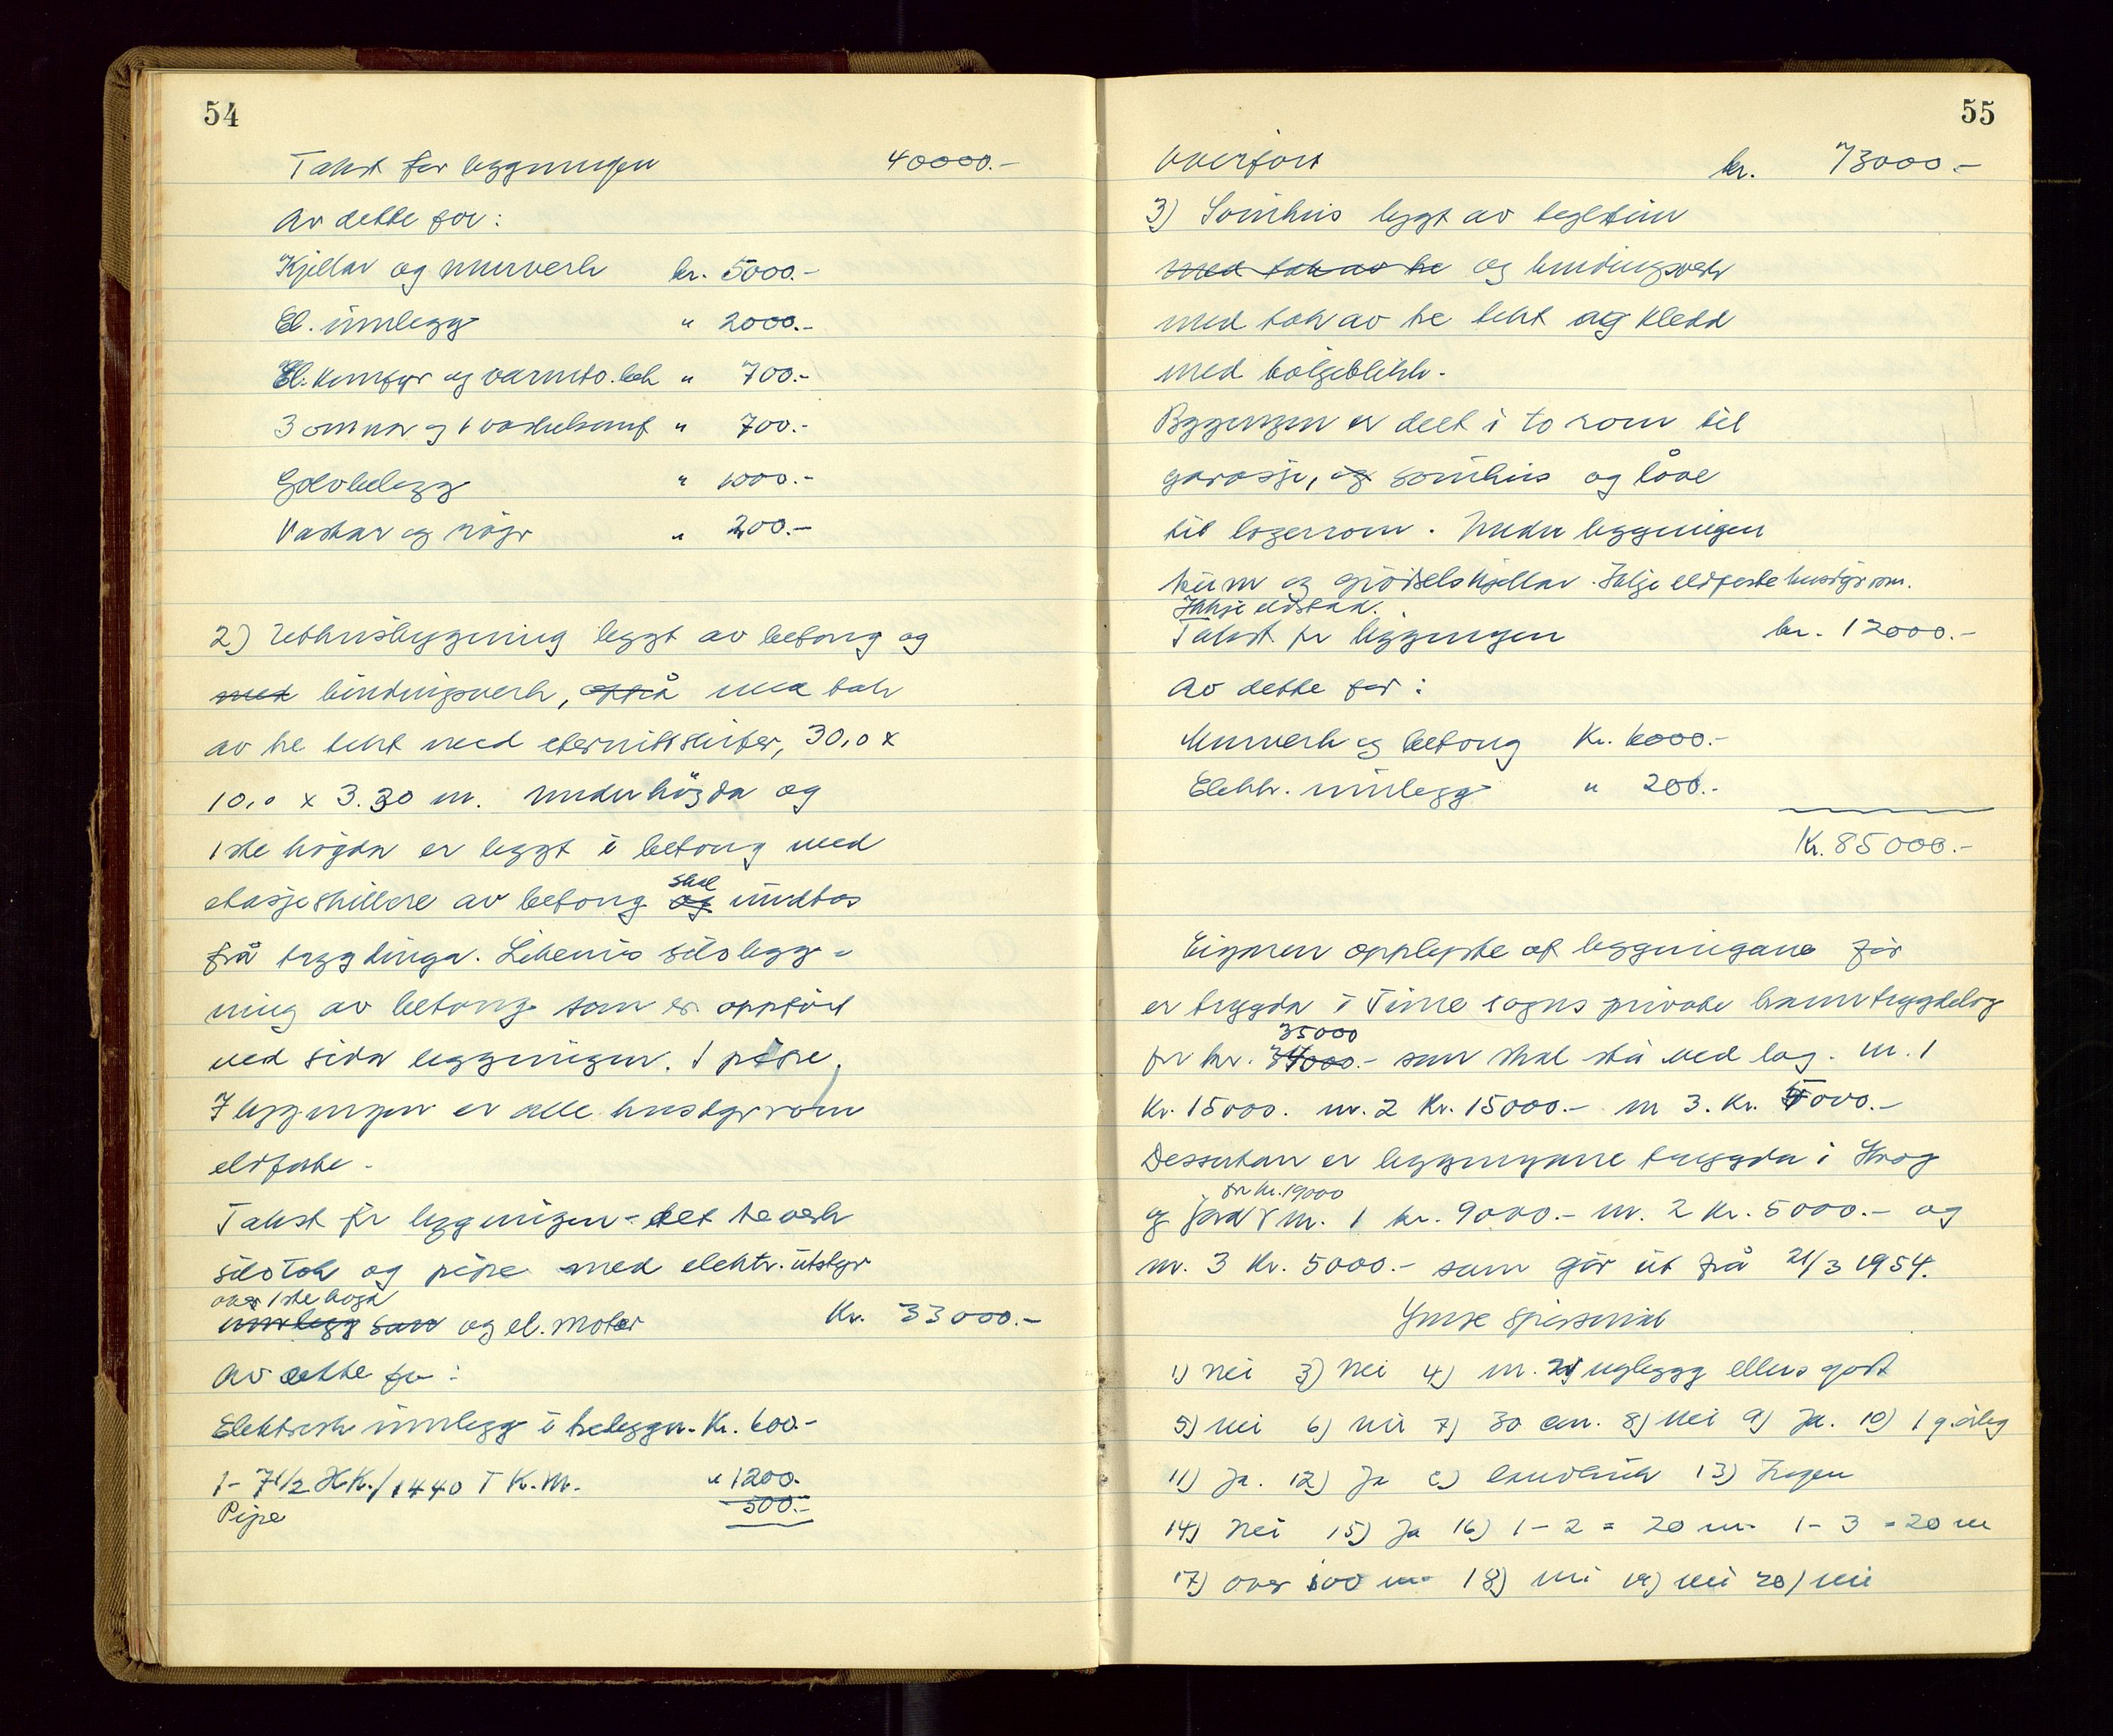 54
Takst for byggningen 40000.-
Av dette for:
Kjellar og murverk kr. 5000.-
El. innlegg " 2000.-
El. komfyr og varmtv. ber. " 700.-
3 omnar og 1 " 700.-
Golvbelegg " 1000.-
Vaskar og röyr " 200.-
2) Uthusbygning bygt av betong og
med bindingsverk, også med tak
av tre tekt med eternittskifer, 30,0 x
10,0 x 3.30 m. Underhögda og
1ste högda er bygt i betong med
etasjeskillere av betong og skal undtas
frå trygdinga. Likeeins silobygg-
ning av betong som er oppfört
ved sida byggningen. 1 pipe.
I byggningen er alle husdyrrom
eldfaste.
Takst for byggningen - det treverk
silotak og pipe med elektr. utstyr
over 1ste högd
innlegg sam og el. motor Kr. 33000.-
Av dette for:
Elektrisk innlegg i trebyggn. Kr. 600.-
1- 7 1/2 H.K./1440 T K.M. " 1200.-
Pipe 500.-
55
Överfört kr. 73000.-
3) Svinhus bygt av teglstein
med tak av tre og bindingsverk
med tak av tre tekt og kledd
med bölgeblikk.
Byggningen er delt i to rom til
garasje, og svinhus og låve
til lagerrom. Under byggningen
kum og gjödselskjellar. Ikkje eldfaste husdyrrom.
Ikkje eldstad.
Takst for byggningen kr. 12000.-
Av dette for:
Murverk og betong Kr. 6000.-
Elektr. innlegg " 200.-
Kr. 85000.-
Eigaren opplyste at byggningane för
er trygda i Time sogns private branntrygdelag
35000
for kr. 34000.- som skal stå ved lag. nr. 1
Kr. 15000. nr. 2 Kr. 15000.- nr 3. Kr. 5000.-
Dessutan er byggningane trygda i Skog
for kr. 19000
og Jord nr. 1 kr. 9000.- nr. 2 Kr. 5000.- og
nr. 3 Kr. 5000.- som går ut frå 21/3 1954.
Ymse spörsmål
1) Nei 3) Nei 4) nr. 2 nybygg ellers godt
5) nei 6) nei 7) 30 cm. 8) Nei 9) Ja. 10) 1 g. årleg
11) Ja. 12) Ja c) landbruk 13) Ingen
14) Nei 15) Ja 16) 1-2 = 20 m 1-3 = 20 m
17) over 100 m 18) nei 19) nei 20) nei